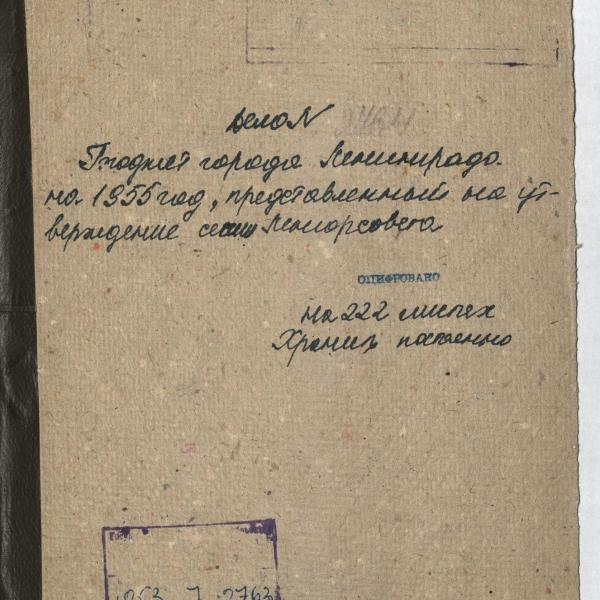 Дело N
Бюджет города Ленинграда
на 1955 год, представленный на ут-
верждение сессии Ленгорсовета
ОЦИФРОВАНО
на 222 листах
Хранить постоянно
253 7 2763